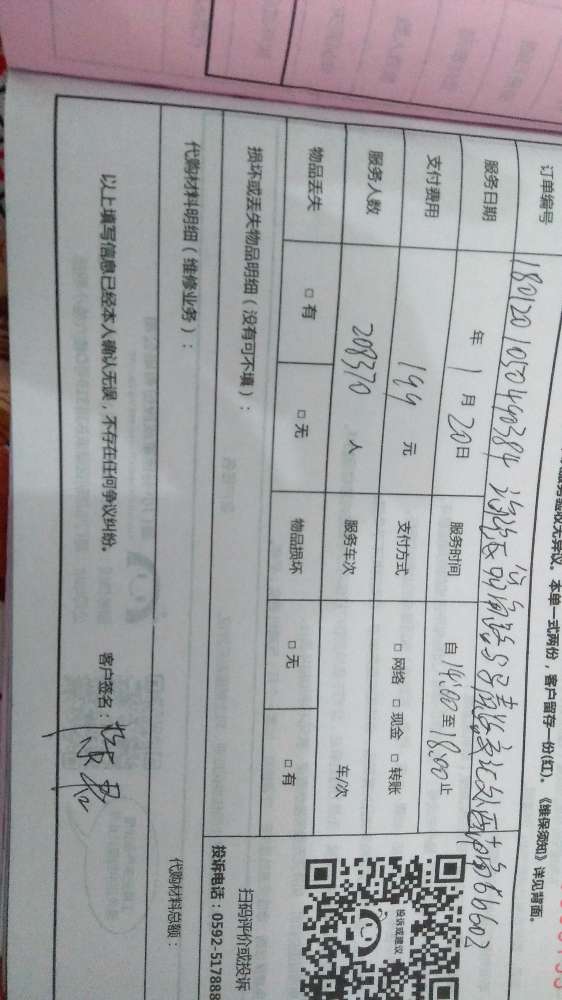 服务验收无异议。本单一式两份，客户留存一份(红)。《维保须知》详见背面。
订单编号 1801201050490384
服务日期 年 1 月 20 日 服务时间 自 14:00 至 18:00 止
支付费用 199 元 支付方式 □ 网络 □ 现金 □ 转账
服务人数 208370 人 服务车次 车/次
物品丢失 □ 有 □ 无 物品损坏 □ 无 □ 有
损坏或丢失物品明细（没有可不填）：
代购材料明细（维修业务）：
代购材料总额：
以上填写信息已经本人确认无误，不存在任何争议纠纷。 客户签名：
投诉或建议
扫码评价或投诉
投诉电话：0592-517888